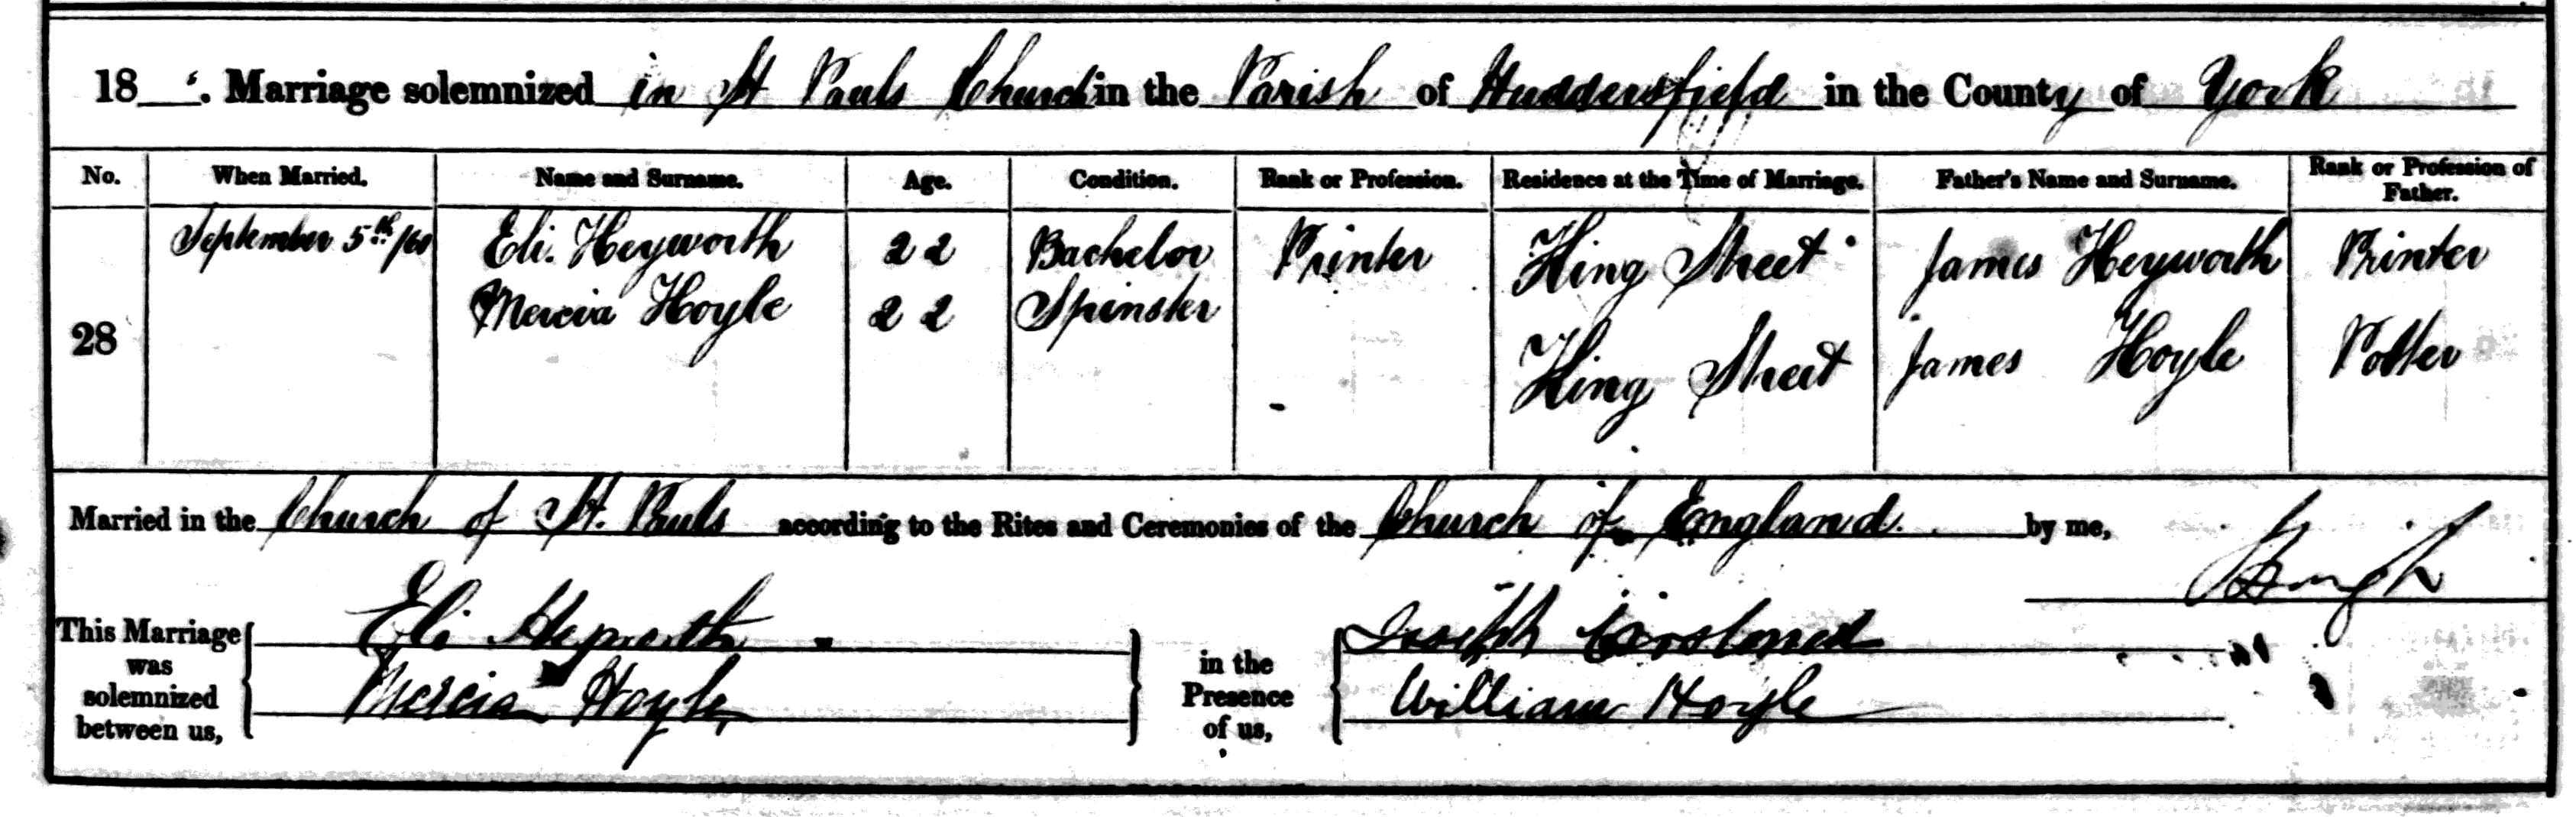 18 . Marriage solemnized in St Pauls Church in the Parish of Huddersfield in the County of York
No. When Married. Name and Surname. Age. Condition. Rank or Profession. Residence at the Time of Marriage. Father's Name and Surname. Rank or Profession of Father.
28 September 5th/60 Eli. Heyworth 22 Bachelor Printer King Street James Heyworth Printer
Mercia Hoyle 22 Spinster - King Street James Hoyle Potter
Married in the Church of St. Pauls according to the Rites and Ceremonies of the Church of England. by me,
This Marriage was solemnized between us, Eli Heyworth in the Presence of us, Joseph
Mercia Hoyle William Hoyle